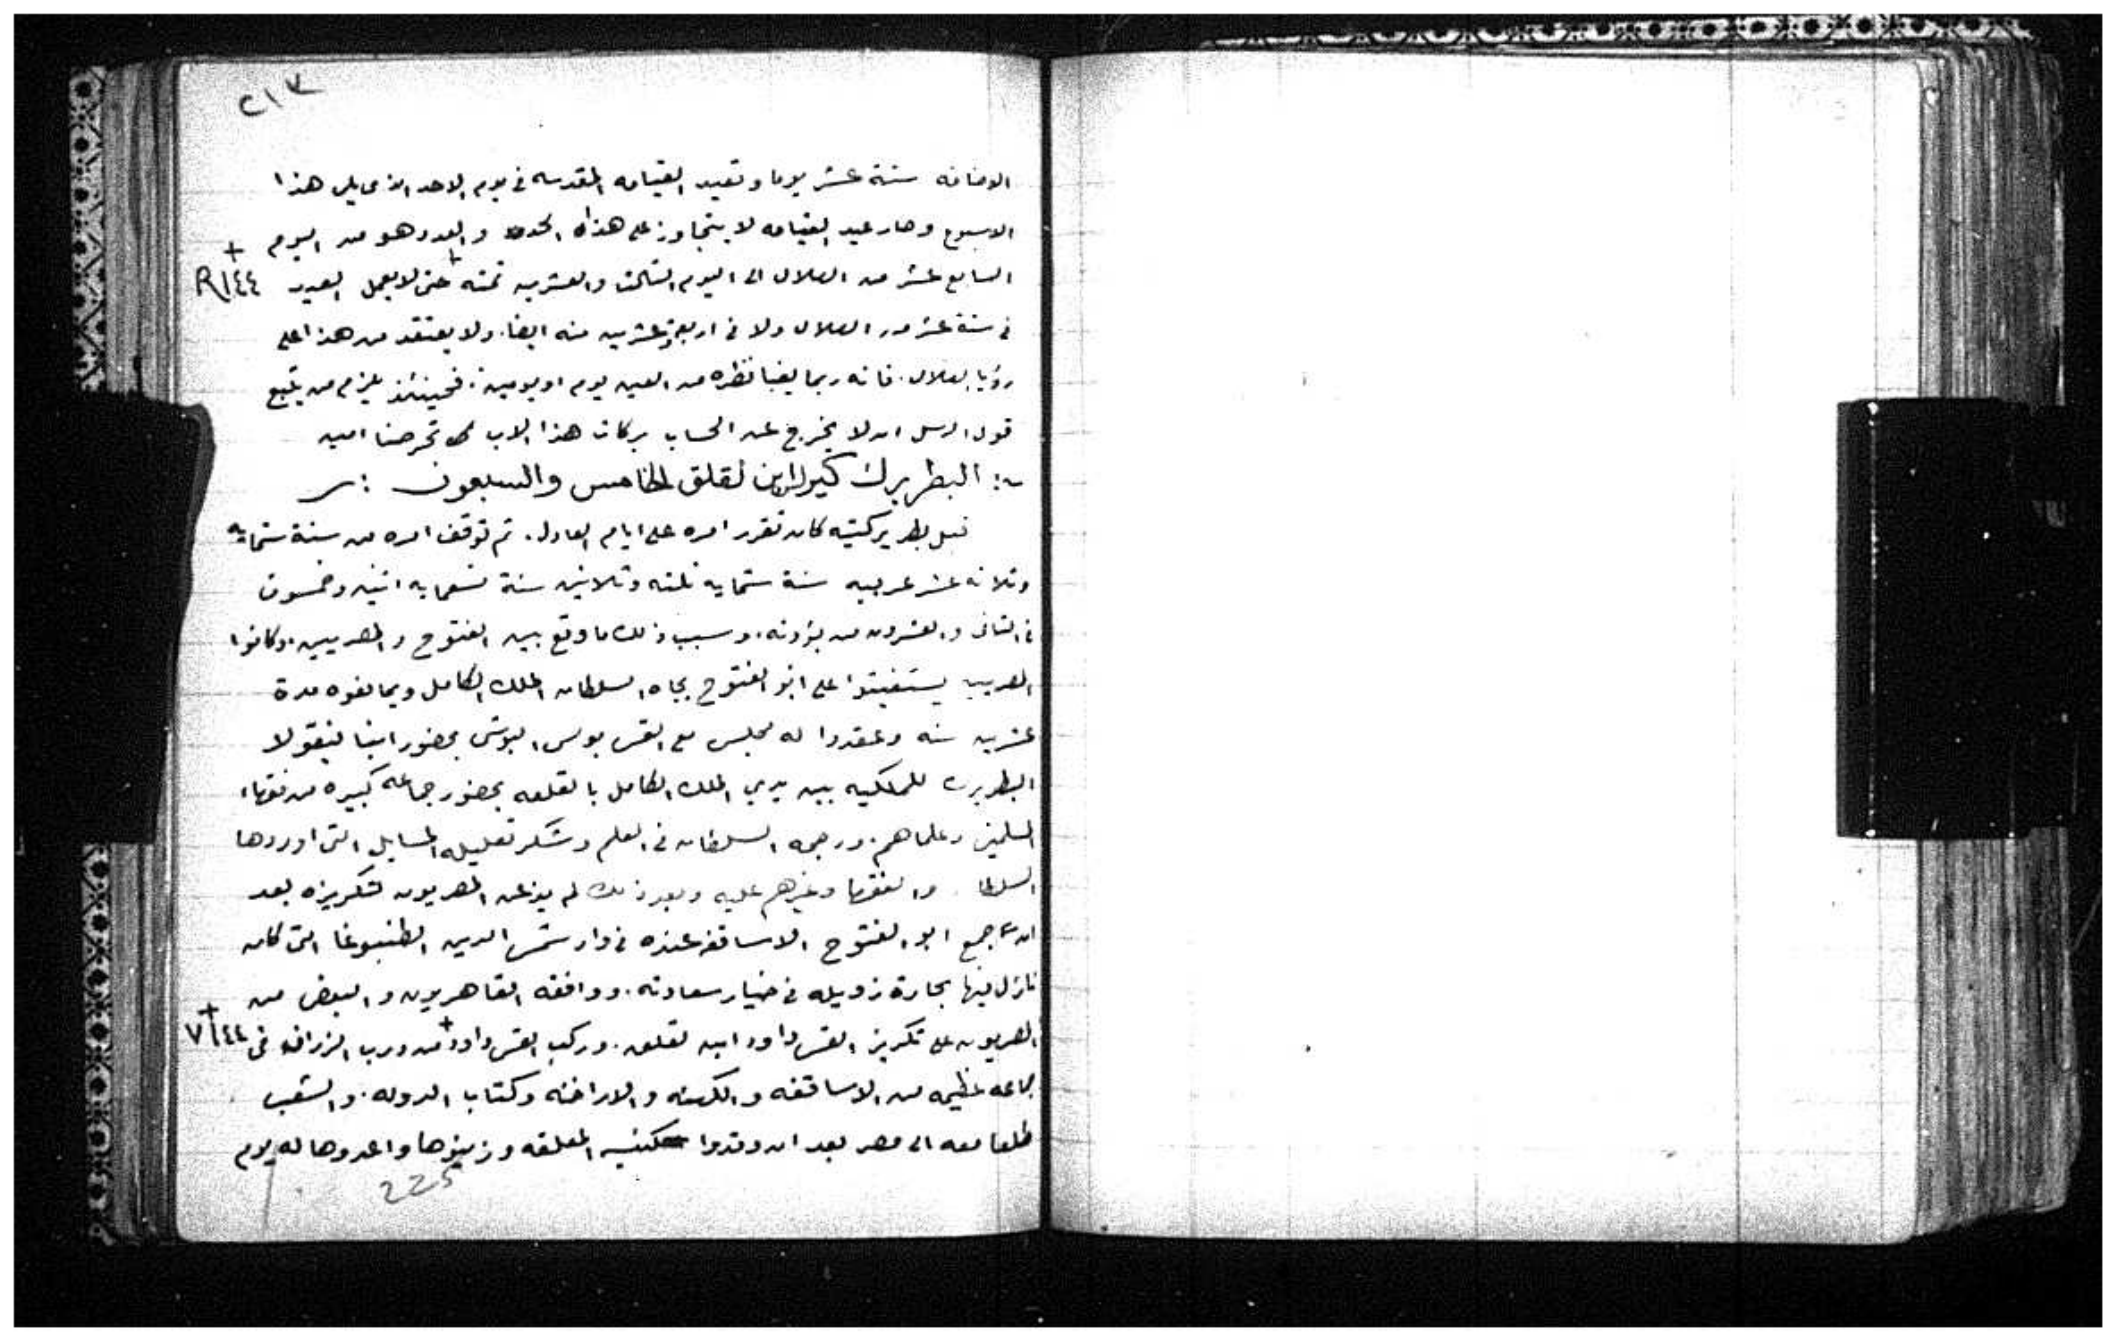 ٢١٣
الاضافه ستة عشر يوما وتعيد القيامه المقدسه فى يوم الاحد الذى يلى هذا
الاسبوع وصار عيد القيامه لا يتجاوز على هذا الحد والعدد وهو من اليوم
السابع عشر من الهلال الى اليوم الثالث والعشرين تمته + حتى لا يعمل العيد + R ١٤٤
فى ستة عشر من الهلال ولا فى اربعة وعشرين منه ايضا. ولا يعتقد من هذا على
رؤيا الهلال. فانه ربما يغبا نظره من العين يوم او يومين. فحينئذ يلزم من يتبع
قول الرسل ان لا يخرج عن الحساب بركات هذا الاب تحرصنا امين
البطريرك كيرلس ابن لقلق الخامس والسبعون
قبل بطريركيته كان تقرر امره على ايام العادل. تم توقف امره من سنة ستمايه
وثلاثه عشر عربيه سنة ستمايه ثلثه وثلاثين سنة تسعمايه اثنين وخمسون
فى الثانى والعشرون من بؤونه. وسبب ذلك ما وقع بين الفتوح والمصريين. وكانوا
المصريين يستغيتوا على ابو الفتوح بجاه السلطان الملك الكامل ويمالعوه مدة
عشرين سنه وعقدوا له مجلس مع القس بولس البوشى بحضور انبا نيقولا
البطريرك للملكيه بين يدي الملك الكامل بالقلعه بحضور جماعه كبيره من فقهاء
المسلمين وعلماهم. ورجحه السلطان فى العلم وشكر تعليله المسايل التى اوردها
السلطان والفقها وغيرهم عليه وبعد ذلك لم يذعن المصريون لتكريزه بعد
ان جمع ابو الفتوح الاساقفه عنده فى دار شمس الدين الطنبوغا التى كان
نازل فيها بحارة زويله فى خيار سعادته. ووافقه القاهريون والبعض من
المصريون على تكريز القس داود ابن لقلق. وركب القس داود + من درب الزرافه فى + V ١٤٤
جماعه عظيمه من الاساقفه والكهنه والاراخنه وكتاب الدوله. والشعب
طلعا معه الى مصر بعد ان وقدوا كنيسه المعلقه وزينوها واعدوها له يوم
225